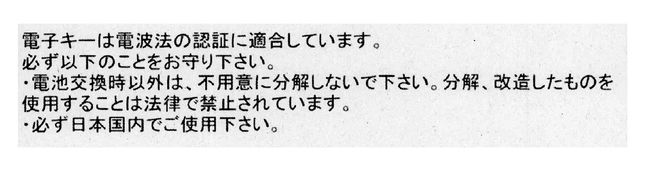 電子キーは電波法の認証に適合しています。
必ず以下のことをお守り下さい。
・電池交換時以外は、不用意に分解しないで下さい。分解、改造したものを
使用することは法律で禁止されています。
・必ず日本国内でご使用下さい。